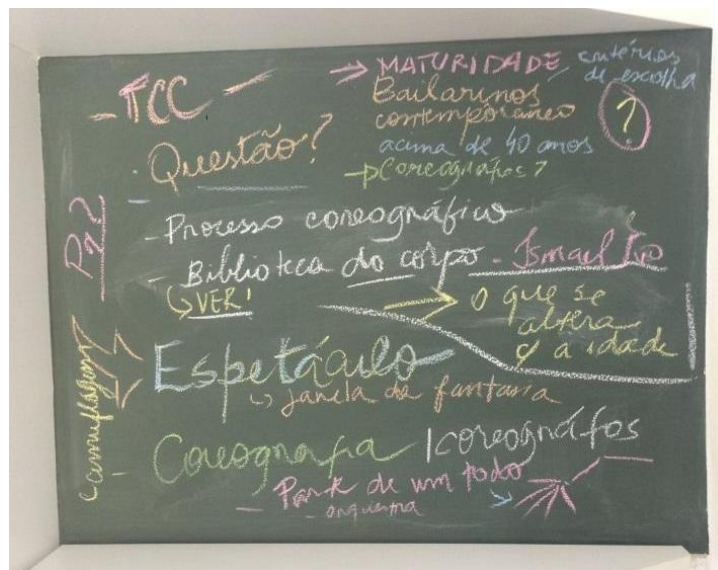 - TCC -
→ MATURIDADE
critérios
de escolha
Bailarinos
contemporâneo
acima de 40 anos
→ Coreógrafos?
?
- Questão?
- Processo coreográfico
- Biblioteca do corpo - Ismael Ivo
↳ VER!
> o que se
altera
c/ a idade
Espetáculo
↳ Janela de fantasia
Coreografia | coreógrafos
- Parte de um todo
- orquestra